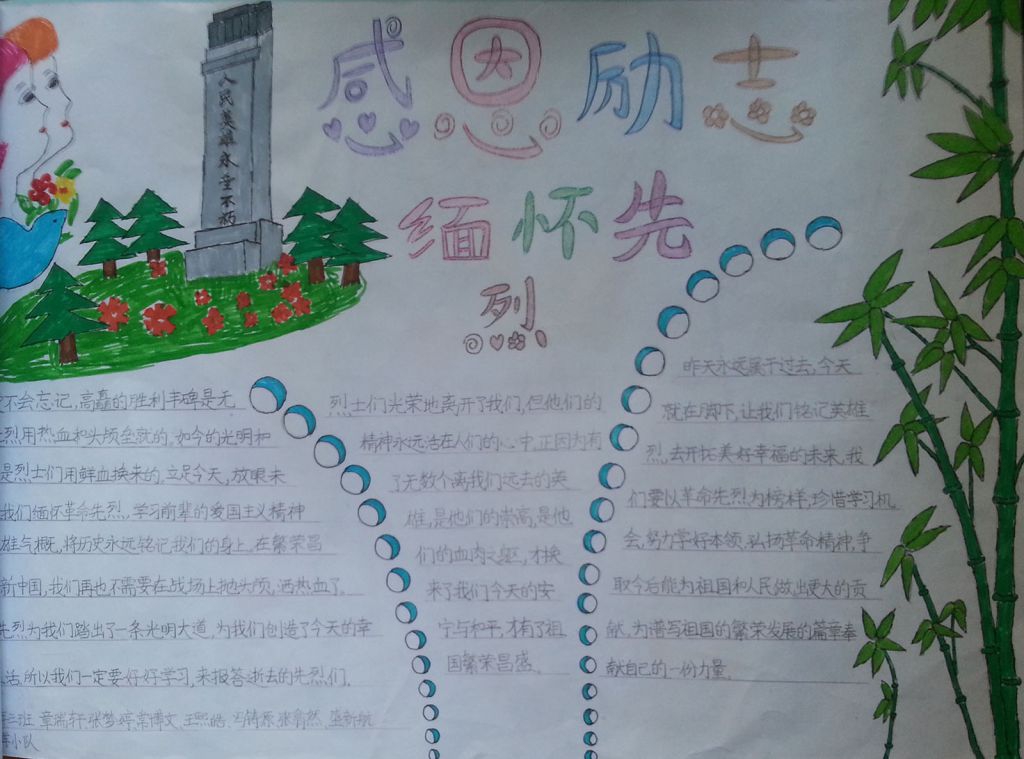 感恩励志
缅怀先
烈
人民英雄永垂不朽
不会忘记,高矗的胜利丰碑是无
烈用热血和头颅垒就的,如今的光明和
是烈士们用鲜血换来的,立足今天,放眼未
我们缅怀革命先烈,学习前辈的爱国主义精神
雄气概,将历史永远铭记我们的身上,在繁荣昌
新中国,我们再也不需要在战场上抛头颅,洒热血了。
先烈为我们踏出了一条光明大道,为我们创造了今天的幸
活,所以我们一定要好好学习,来报答逝去的先烈们。
班 章瑞轩,张梦婷,常博文,王熙皓
小队
烈士们光荣地离开了我们,但他们的
精神永远活在人们的心中,正因为有
了无数个离我们远去的英
雄,是他们的崇高,是他
们的血肉之躯,才换
来了我们今天的安
宁与和平,才有了祖
国繁荣昌盛。
昨天永远属于过去,今天
就在脚下,让我们铭记英雄
烈,去开拓美好幸福的未来,我
们要以革命先烈为榜样,珍惜学习机
会,努力学好本领,弘扬革命精神,争
取今后能为祖国和人民做出更大的贡
献,为谱写祖国的繁荣发展的篇章奉
献自己的一份力量。